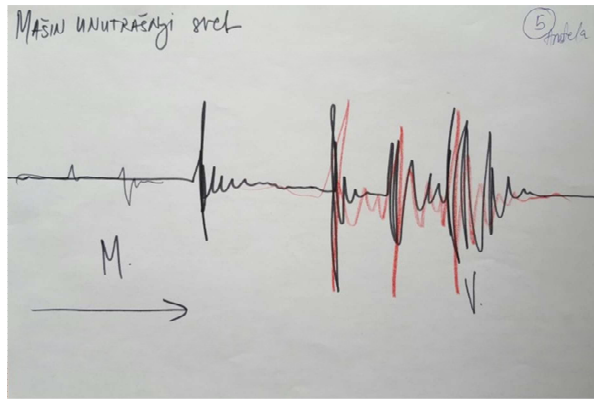 MAŠIN UNUTRAŠNJI svet
5
Anđela
M.
V.